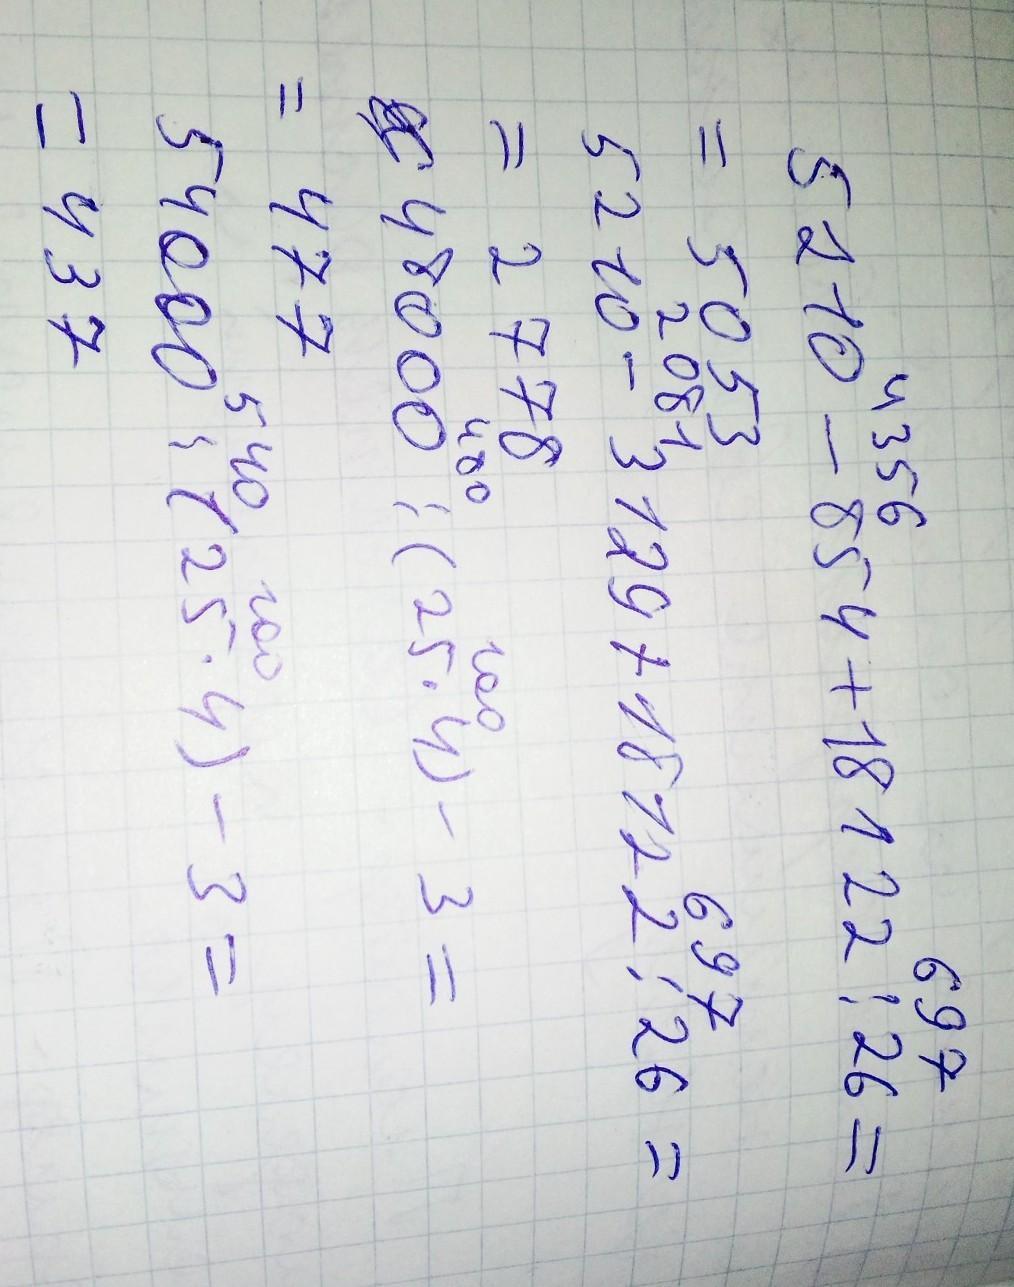 4356 697
5210-854+18122:26=
= 5053
2081 697
5210-3129+18122:26=
= 2778
400 100
48000:(25·4)-3=
= 477
540 100
54000:(25·4)-3=
= 437